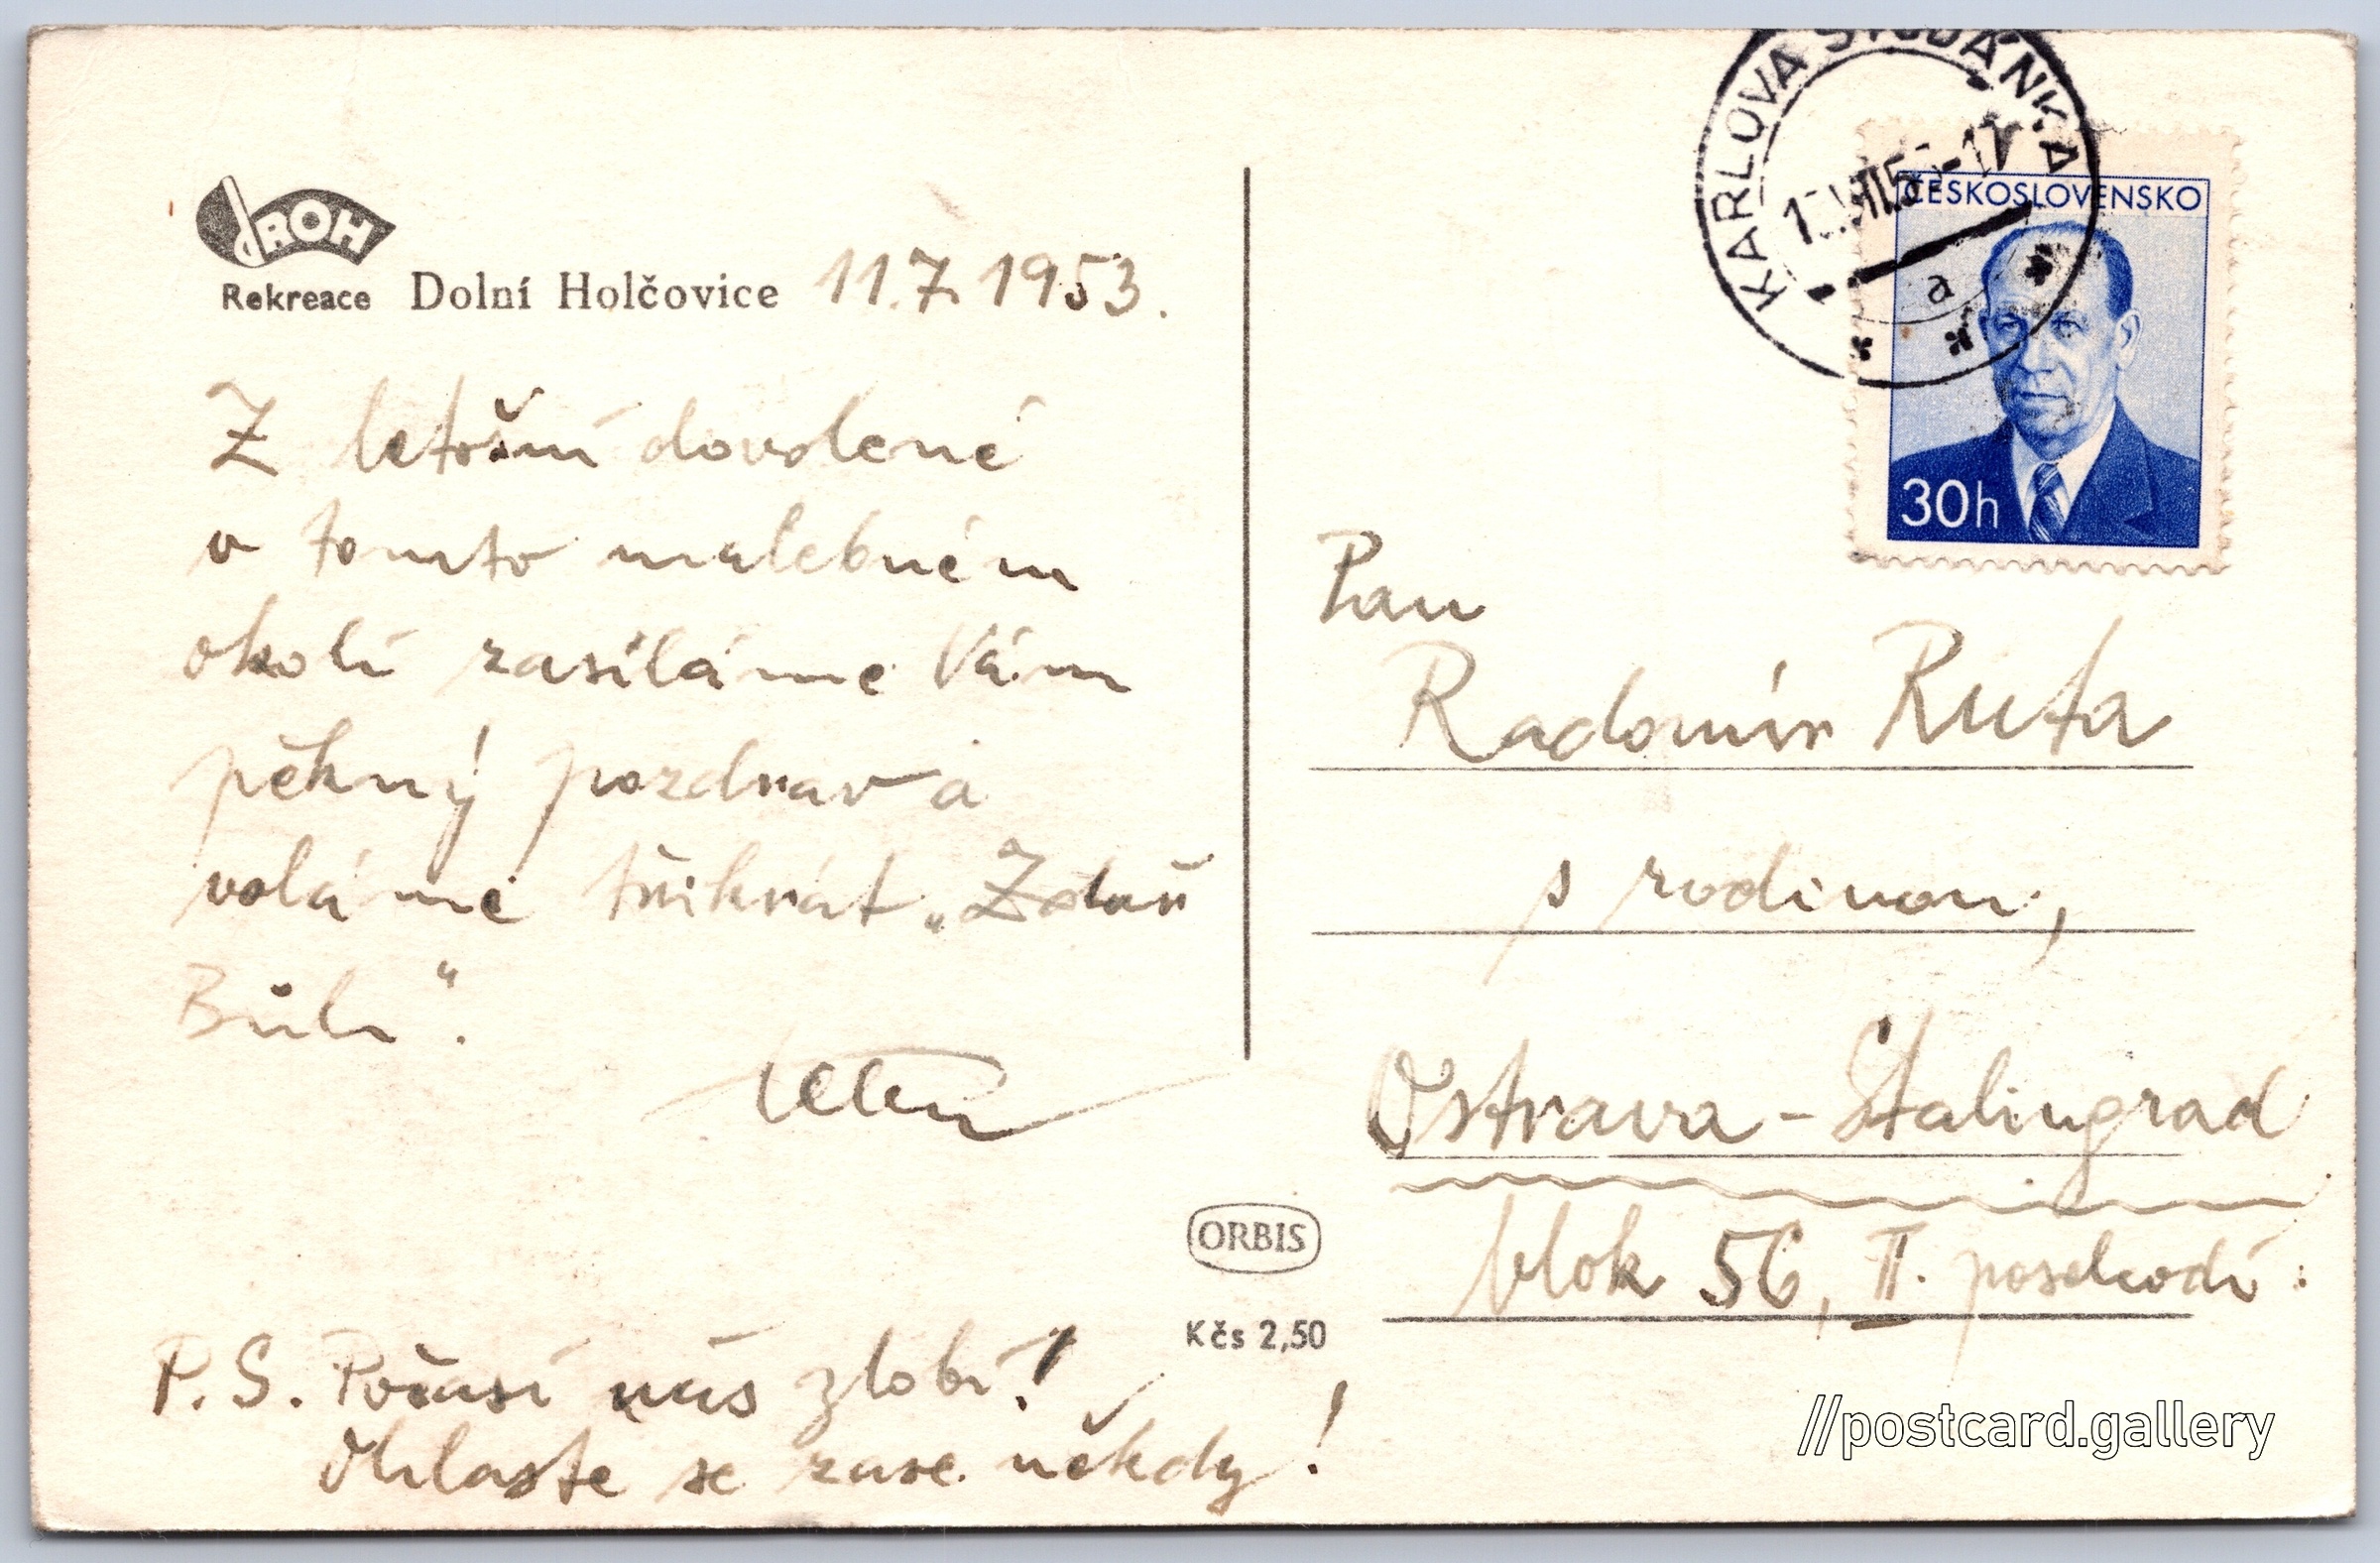 ROH
Rekreace
Dolní Holčovice 11.7.1953.
Z letošní dovolené
v tomto malebném
okolí zasíláme Vám
pěkný pozdrav a
voláme třikrát „Zdař
Bůh".
P.S. Počasí nás zlobí!
Ohlaste se zase někdy!
ORBIS
Kčs 2,50
KARLOVA STUDÁNKA
a
ČESKOSLOVENSKO
30h
Pan
Radomír Ruta
s rodinou,
Ostrava-Stalingrad
blok 56, II. poschodí.
//postcard.gallery